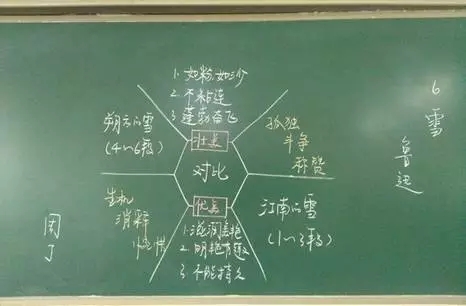 6
雪
鲁迅
1. 如粉,如沙
2. 不粘连
3. 蓬勃奋飞
朔方的雪
(4~6段)
壮美
孤独
斗争
称赞
对比
生机
消释
优美
1. 滋润美艳
2. 明艳有趣
3. 不能持久
江南的雪
(1~3段)